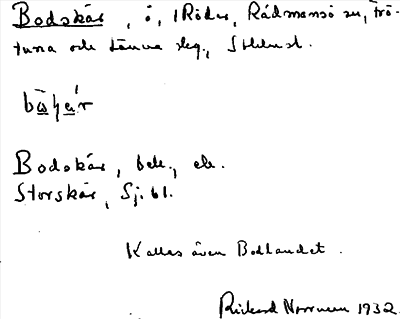 Bodskär, ö, i Röder, Rådmansö sn, Frö-
tuna och Länna slg., Sthlms l.
Bodskär, bebr., ek.
Storskär, Sj. bl.
Kallas även Bodlandet.
Rickard Norrman 1932.